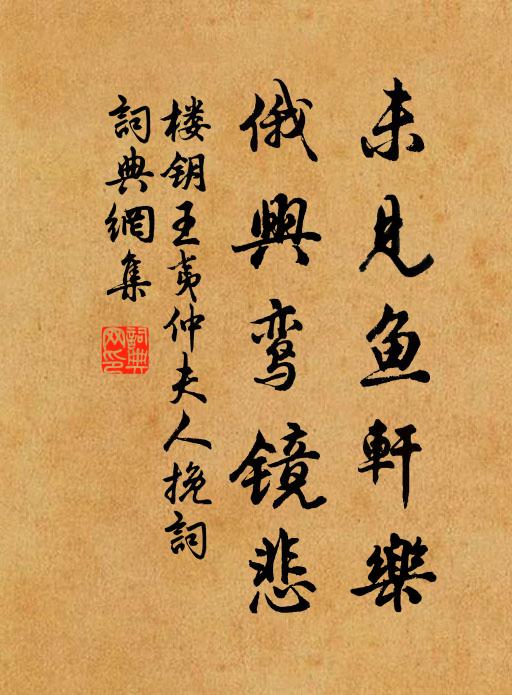 未見鱼軒樂
俄興鸾镜悲
楼钥王夷仲夫人挽詞
詞典網集
詞典网印